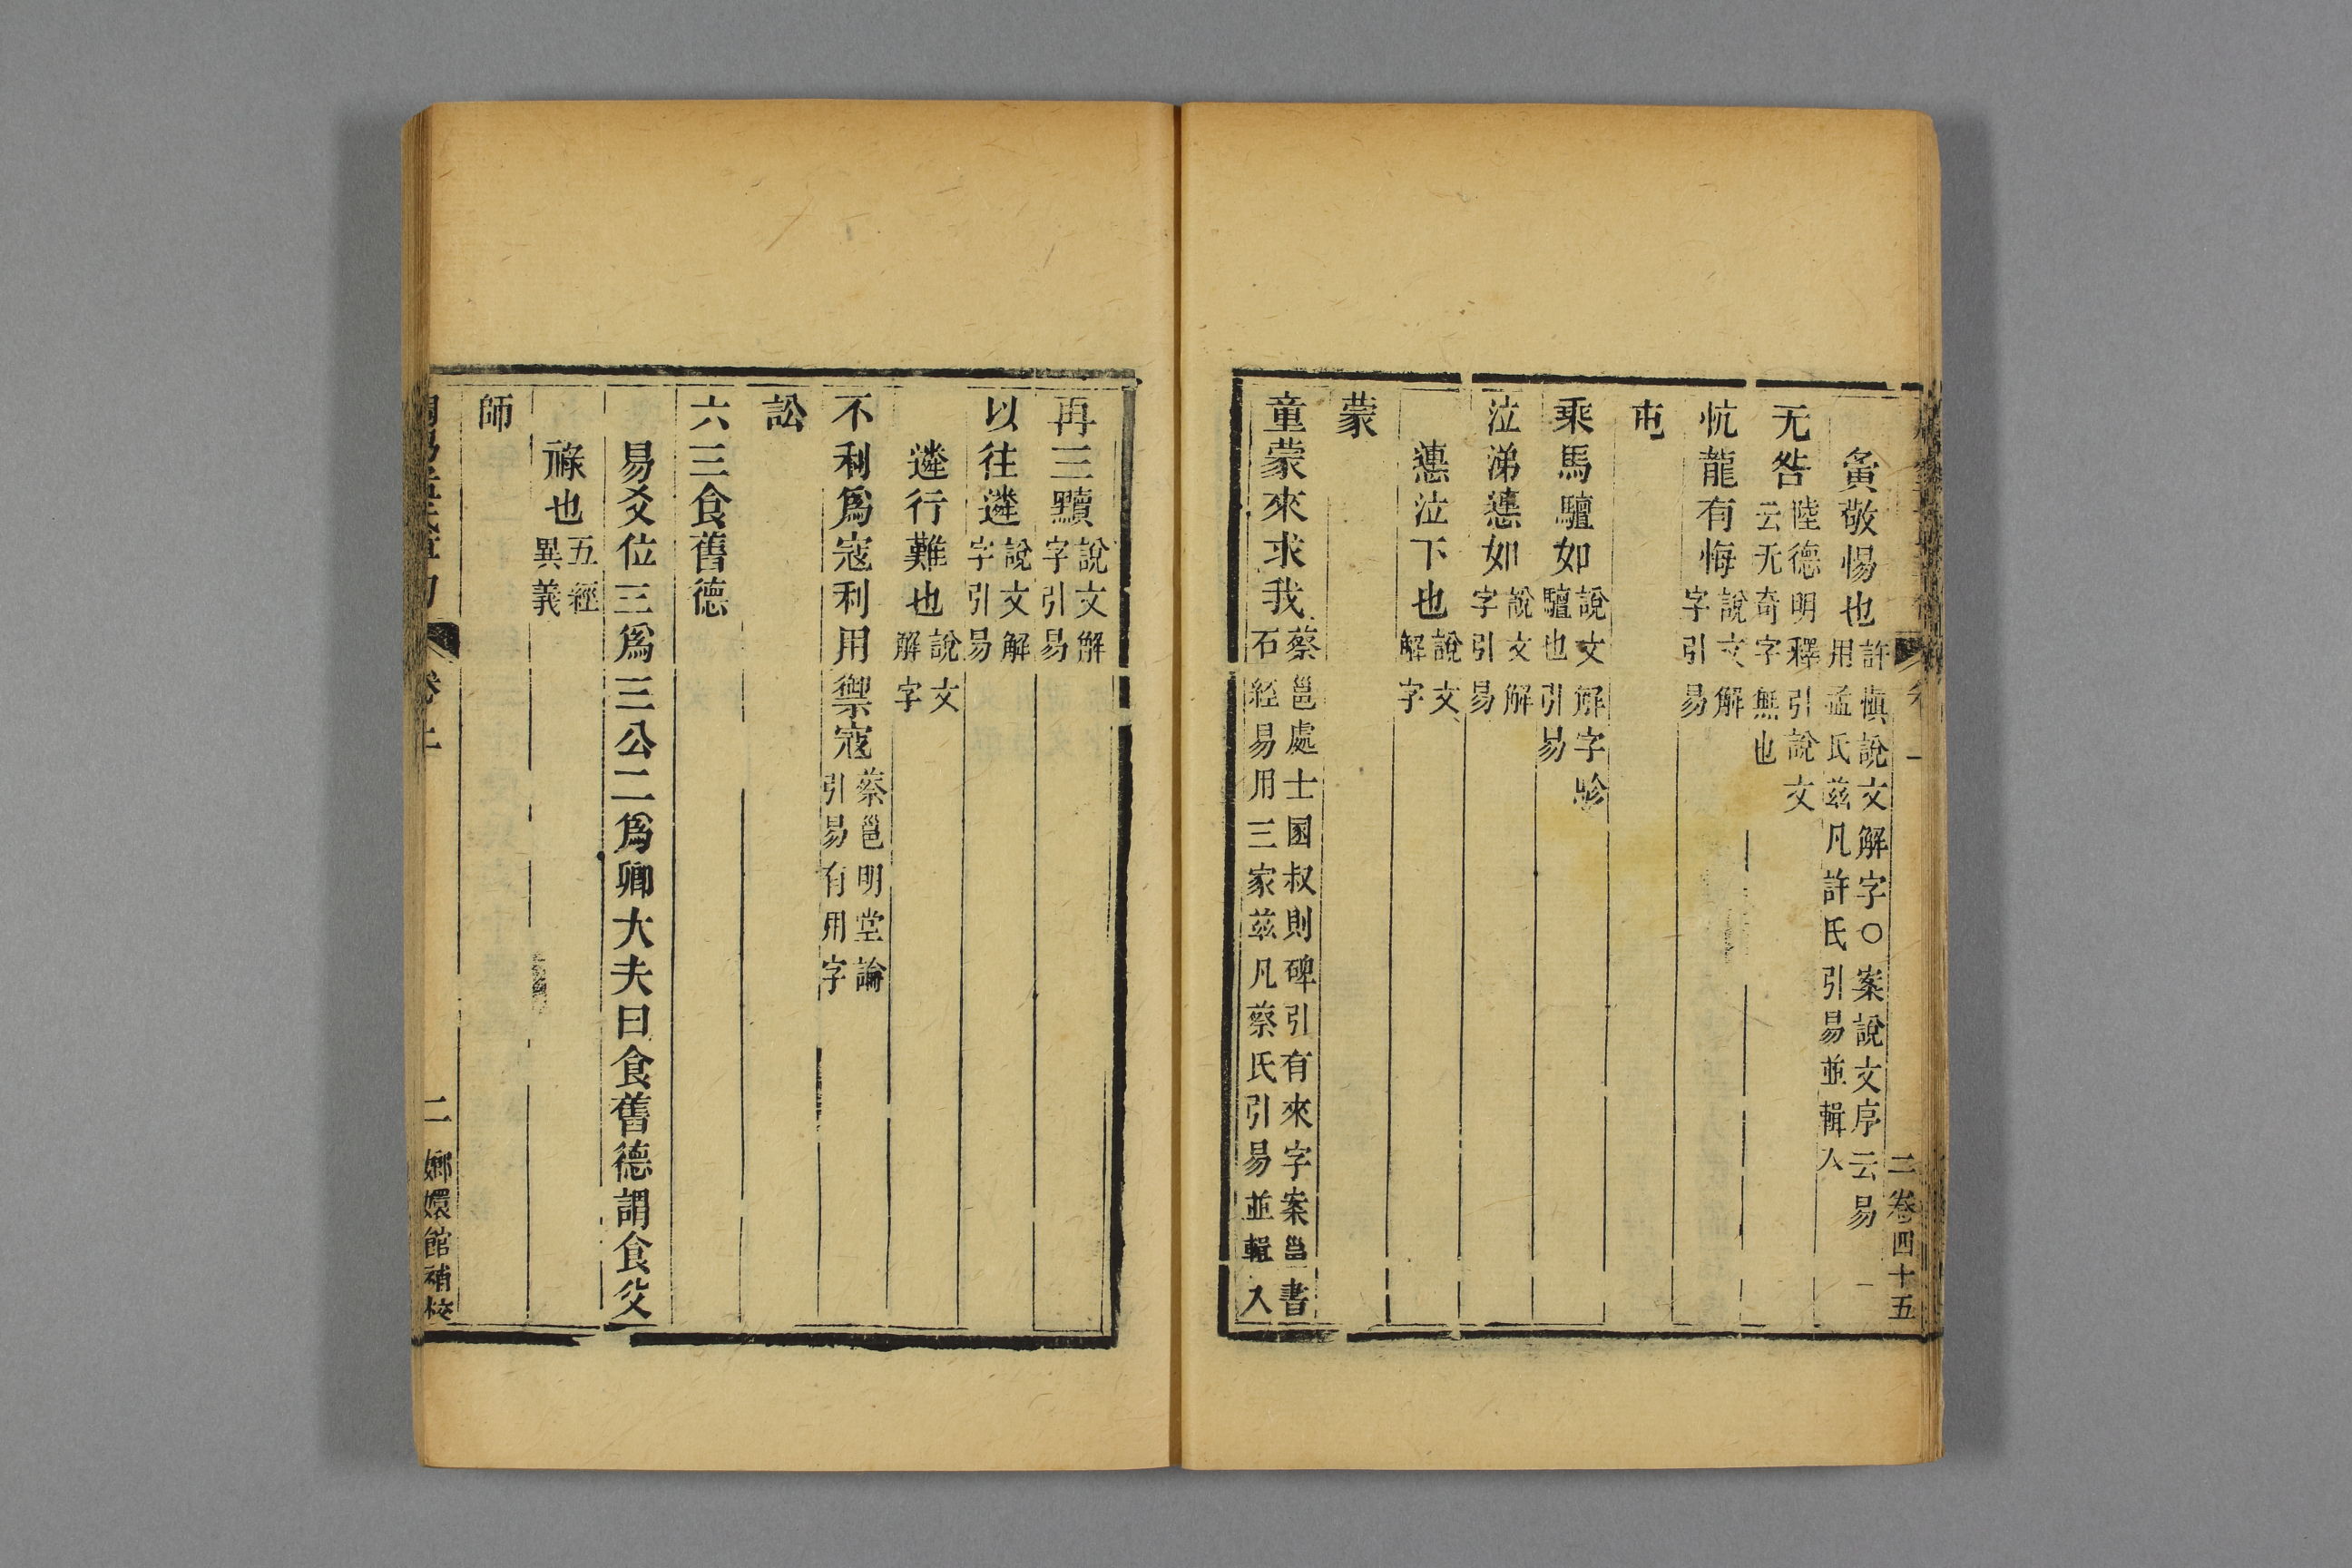 夤敬惕也許慎說文解字○案說文序云易用孟氏兹凡許氏引易並輯入
无咎陸德明釋引說文云无奇字無也
忼龍有悔說文解字引易
屯
乘馬驙如說文解字馬㐱驙也引易
泣涕㦁如說文解字引易
㦁泣下也說文解字
蒙
童蒙來求我蔡邕處士圂叔則碑引有來字案邕書石經易用三家兹凡蔡氏引易並輯入
二卷四十五
再三黷說文解字引易
以往遴說文解字引易
遴行難也說文解字
不利爲寇利用禦寇蔡邕明堂論引易有用字
訟
六三食舊德
易爻位三爲三公二爲卿大夫曰食舊德謂食父
祿也五經異義
師
卷上
二
嫏嬛館補校